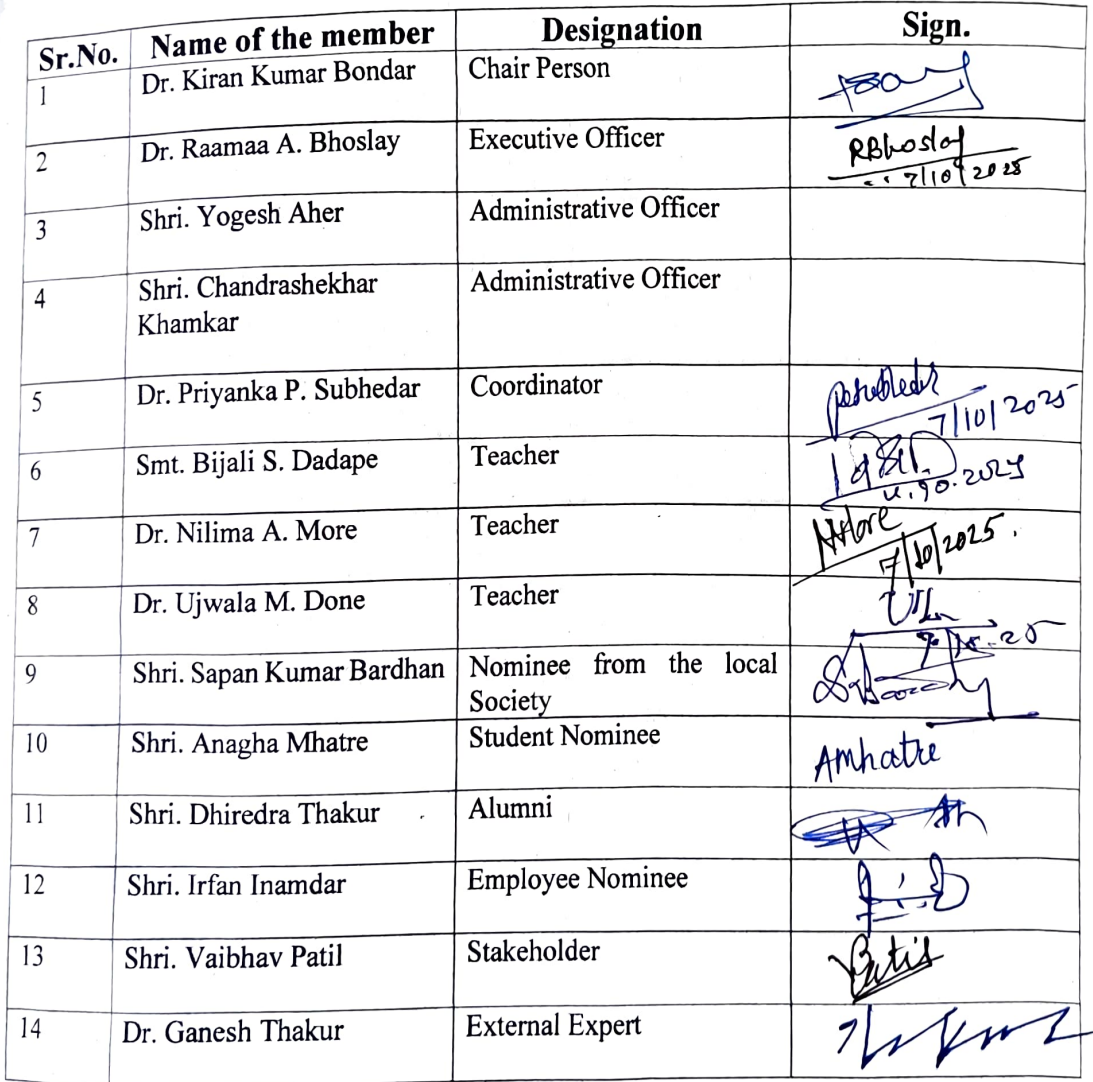 Sr.No. Name of the member Designation Sign.
1 Dr. Kiran Kumar Bondar Chair Person
2 Dr. Raamaa A. Bhoslay Executive Officer RBhoslay
7/10/2025
3 Shri. Yogesh Aher Administrative Officer
4 Shri. Chandrashekhar Administrative Officer
Khamkar
5 Dr. Priyanka P. Subhedar Coordinator
7/10/2025
6 Smt. Bijali S. Dadape Teacher
7 Dr. Nilima A. More Teacher NMore
7/10/2025.
8 Dr. Ujwala M. Done Teacher
9 Shri. Sapan Kumar Bardhan Nominee from the local
Society
10 Shri. Anagha Mhatre Student Nominee Amhatre
11 Shri. Dhiredra Thakur Alumni
12 Shri. Irfan Inamdar Employee Nominee
13 Shri. Vaibhav Patil Stakeholder
14 Dr. Ganesh Thakur External Expert